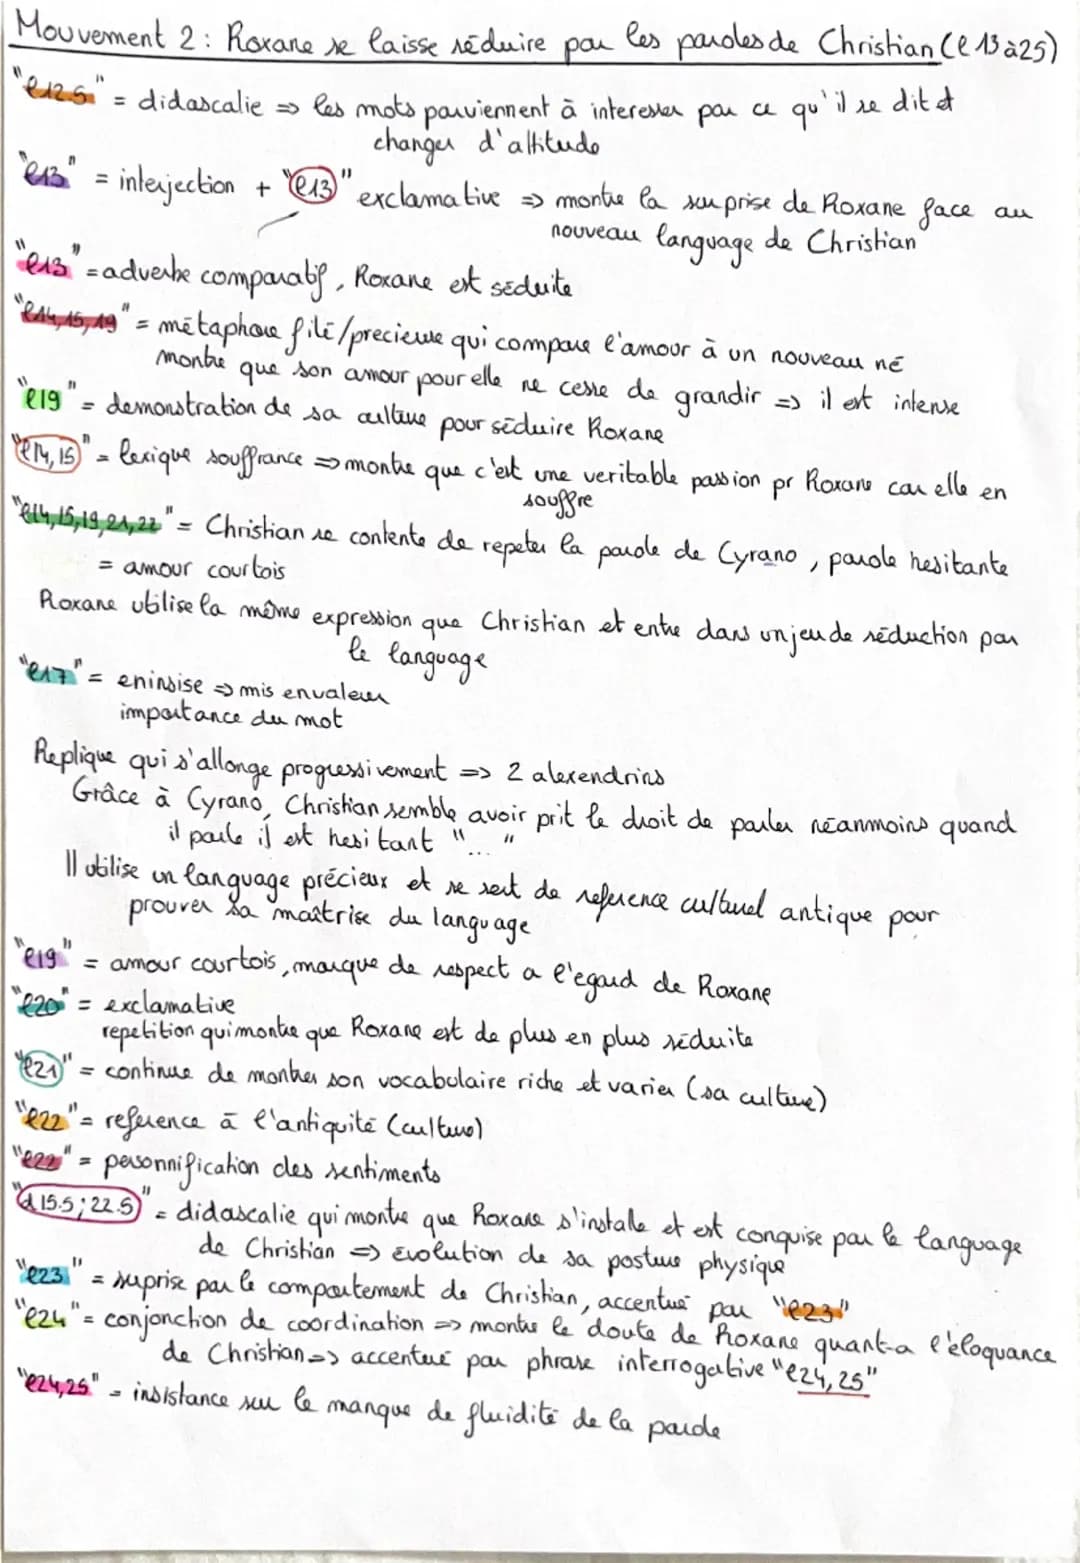 Mouvement 2 : Roxane se laisse séduire par les paroles de Christian (l 13 à 25)
"l12.5" = didascalie => les mots parviennent à interesser par ce qu'il se dit et
changer d'attitude
"l13" = interjection + "l13" exclamative => montre la surprise de Roxane face au
nouveau language de Christian
"l13" = adverbe comparatif, Roxane est séduite
"l14,15,19" = métaphore filé/precieuse qui compare l'amour à un nouveau né
montre que son amour pour elle ne cesse de grandir => il est intense
"l19" = demonstration de sa culture pour séduire Roxane
"l14,15" = lexique souffrance => montre que c'est une veritable passion pr Roxane car elle en
souffre
"l14,15,19,21,22" = Christian se contente de repeter la parole de Cyrano, parole hesitante
= amour courtois
Roxane utilise la même expression que Christian et entre dans un jeu de séduction par
le language
"l17" = eninsise => mis en valeur
importance du mot
Replique qui s'allonge progressivement => 2 alexendrins
Grâce à Cyrano, Christian semble avoir prit le droit de parler néanmoins quand
il parle il est hesitant "..."
Il utilise un language précieux et se sert de reference culturel antique pour
prouver sa maîtrise du language
"l19" = amour courtois, marque de respect a l'egard de Roxane
"l20" = exclamative
repetition qui montre que Roxane est de plus en plus séduite
"l21" = continue de montrer son vocabulaire riche et varier (sa culture)
"l22" = reference à l'antiquité (culture)
"l22" = personnification des sentiments
"d 15.5 ; 22.5" = didascalie qui montre que Roxane s'installe et est conquise par le language
de Christian => Evolution de sa posture physique
"l23" = suprise par le comportement de Christian, accentué par "l23"
"l24" = conjonction de coordination => montre le doute de Roxane quant-a l'éloquance
de Christian => accentué par phrase interrogative "l24, 25"
"l24,25" = insistance sur le manque de fluidité de la parole